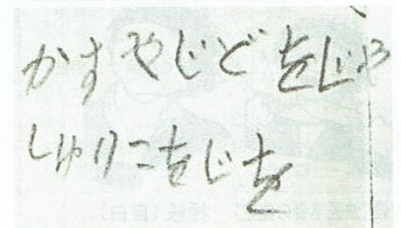 かすやじどをじゃ
しゅりこをじを